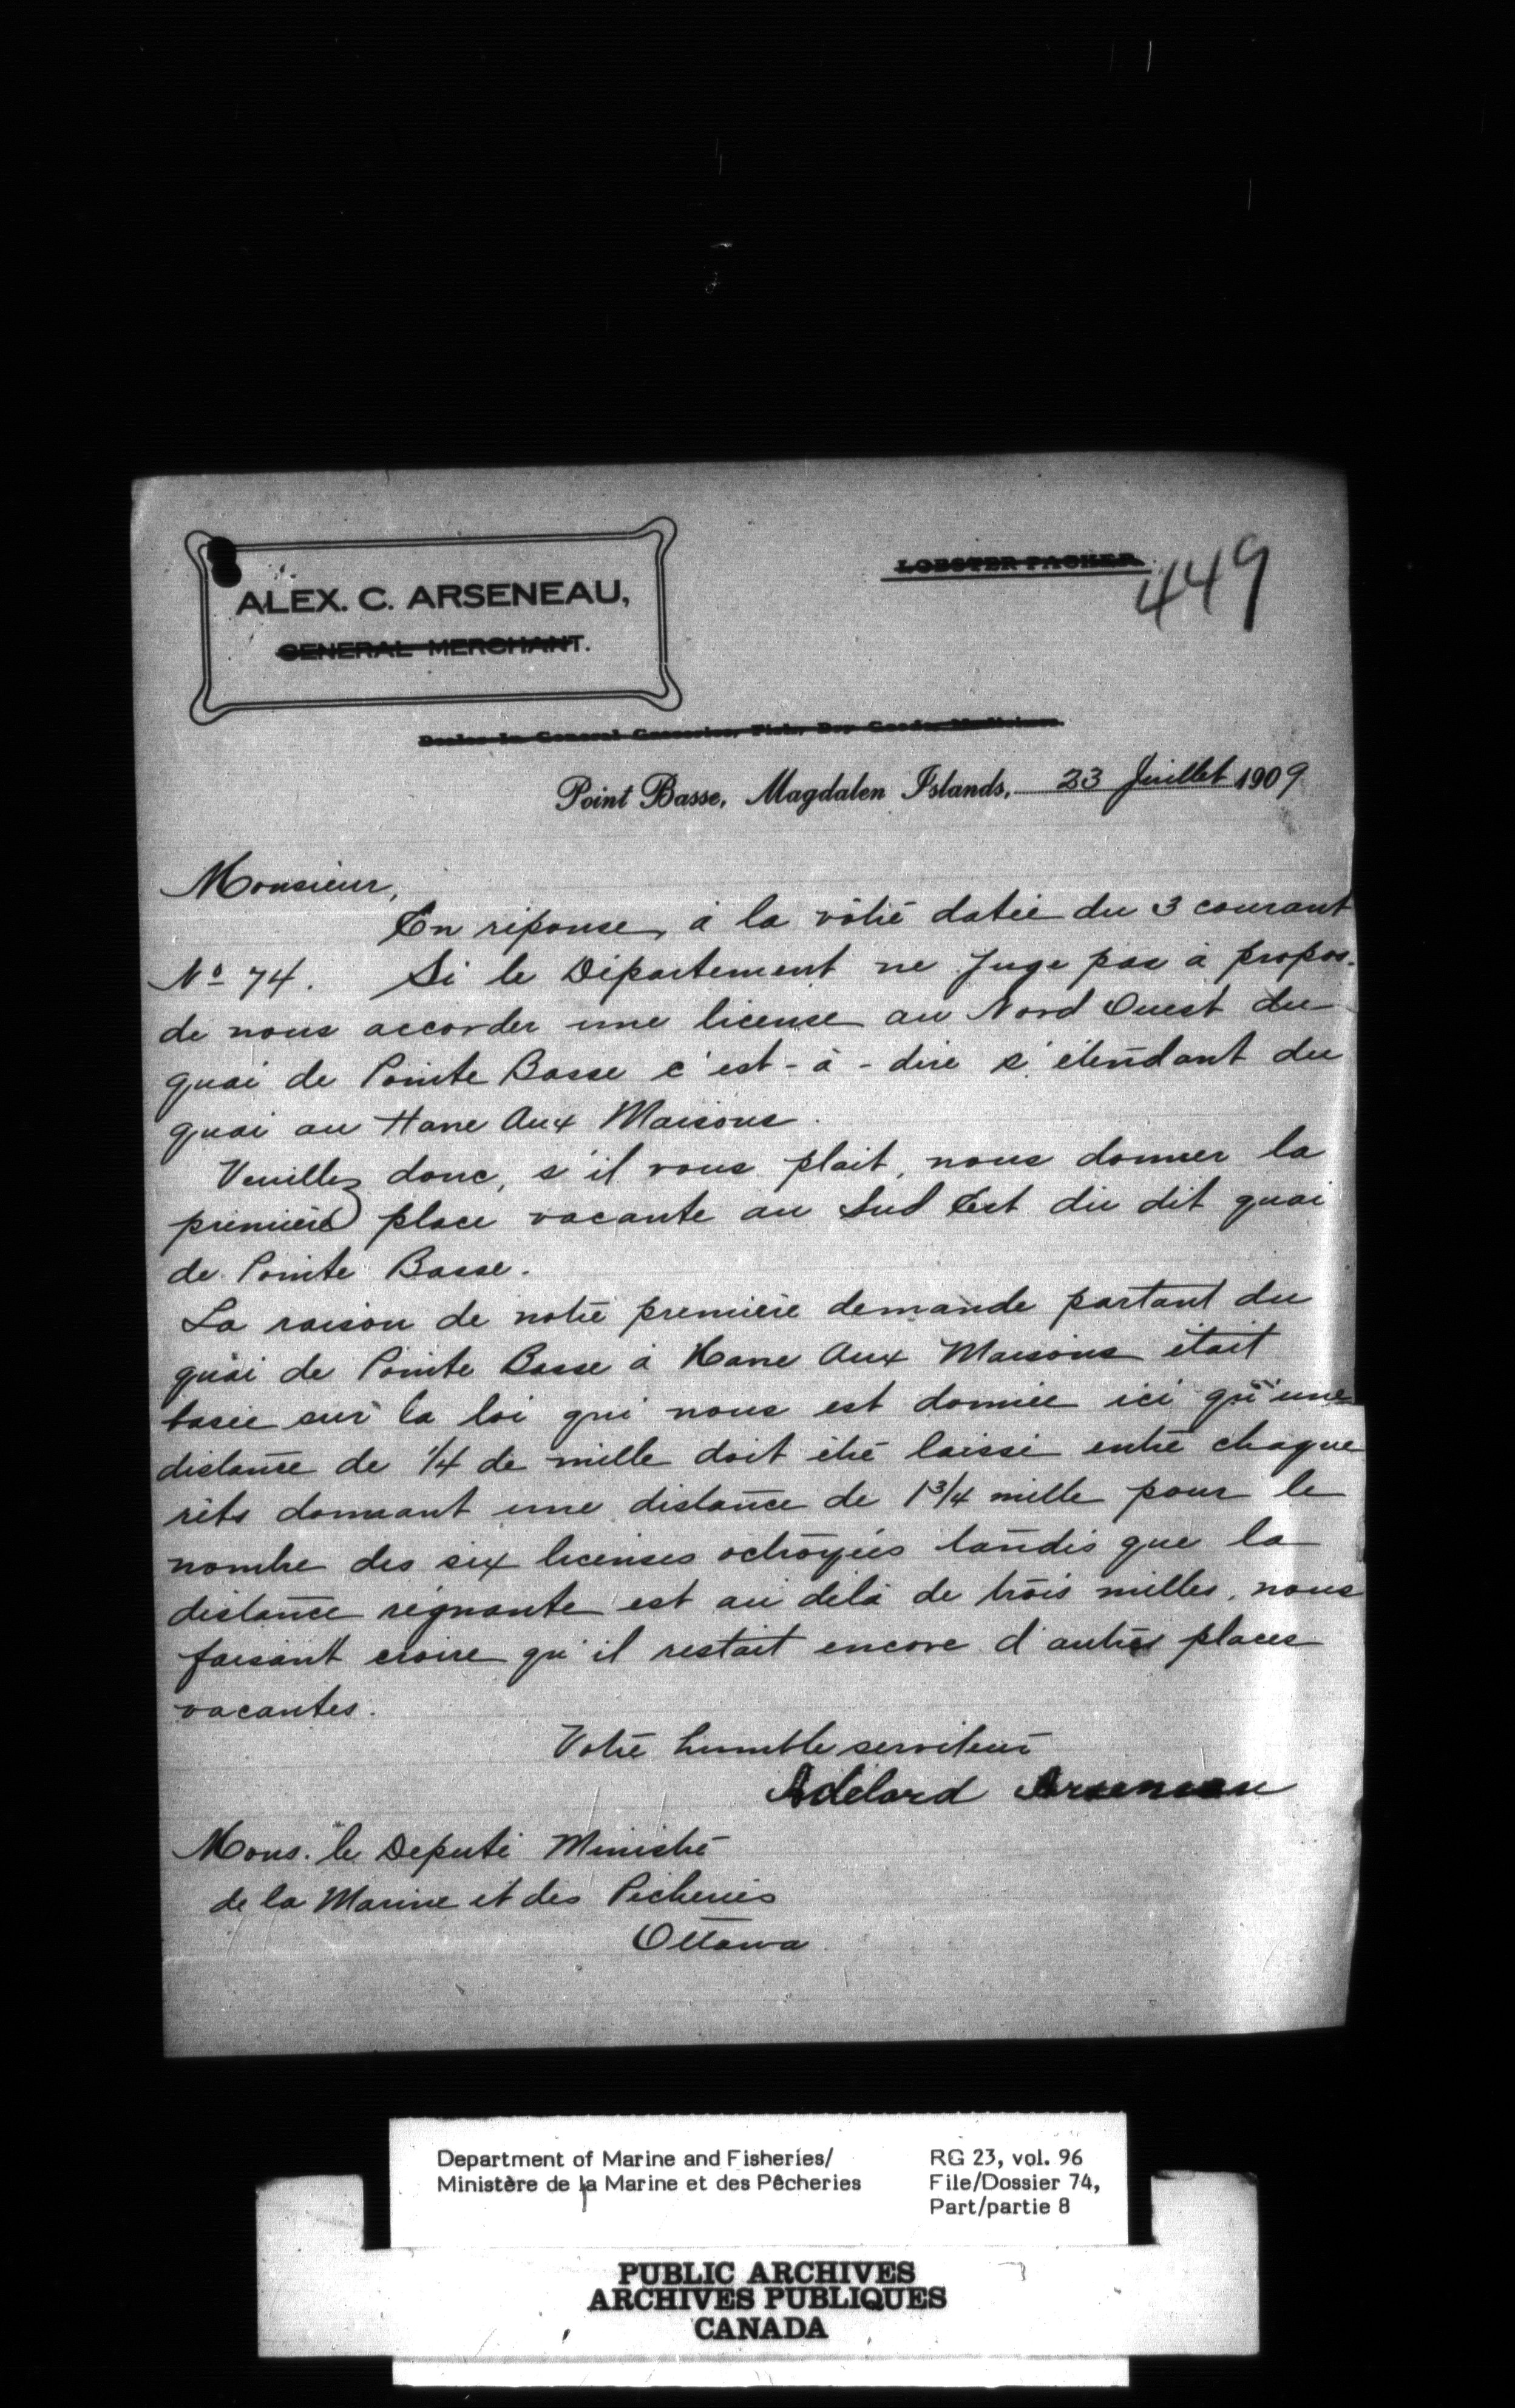 LOBSTER PACKER
449
ALEX. C. ARSENEAU,
GENERAL MERCHANT.
Dealer In General Groceries, Fish, Dry Goods, Medicines.
Point Basse, Magdalen Islands, 23 Juillet 1909
Monsieur,
En réponse, à la vôtre datée du 3 courant
No 74. Si le Département ne Juge pas à propos
de nous accorder une license au Nord Ouest du
quai de Pointe Basse c'est-à-dire s'étendant du
quai au Havre Aux Maisons.
Veuillez donc, s'il vous plait, nous donner la
première place vacante au Sud Est du dit quai
de Pointe Basse.
La raison de notre première demande partant du
quai de Pointe Basse à Havre Aux Maisons était
basée sur la loi qui nous est donnée ici qu'une
distance de 1/4 de mille doit être laissé entre chaque
rêts donnant une distance de 1 3/4 mille pour le
nombre des six licenses octroyées tandis que la
distance régnante est au delà de trois milles, nous
faisant croire qu'il restait encore d'autres places
vacantes.
Votre humble serviteur
Adélard Arseneau
Mons. le Deputé Ministre
de la Marine et des Pecheries
Ottawa
Department of Marine and Fisheries/
Ministère de la Marine et des Pêcheries
RG 23, vol. 96
File/Dossier 74,
Part/partie 8
PUBLIC ARCHIVES
ARCHIVES PUBLIQUES
CANADA